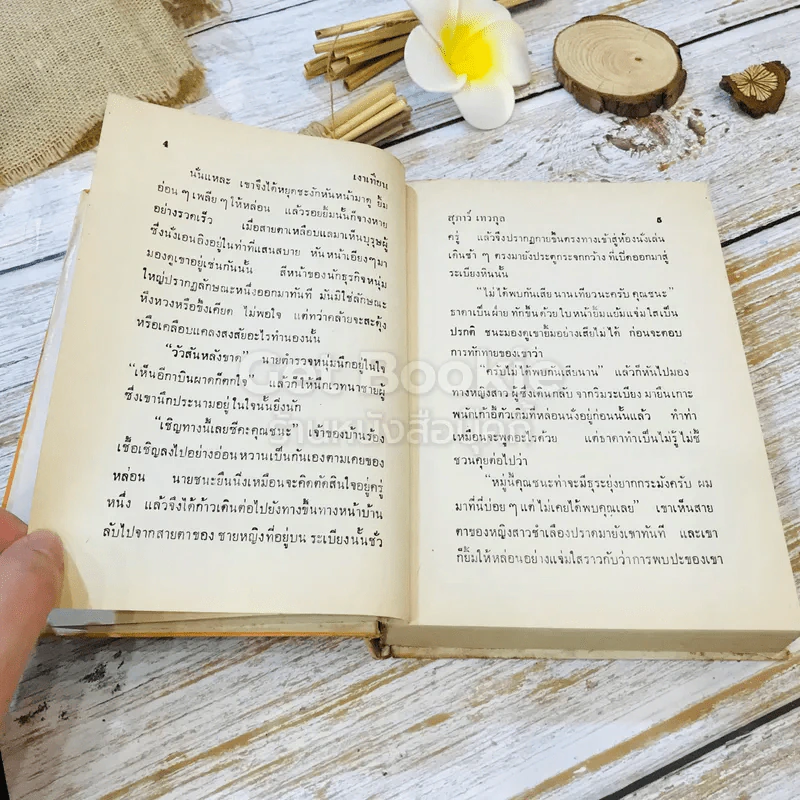 4
เงาเทียน
นั่นแหละ เขาจึงได้หยุดชะงักหันหน้ามาดู ยิ้ม
อ่อน ๆ เพลีย ๆ ให้หล่อน แล้วรอยยิ้มนั้นก็จางหาย
อย่างรวดเร็ว เมื่อสายตาเหลือบแลมาเห็นบุรุษผู้
ซึ่งนั่งเอนอิงอยู่ในท่าที่แสนสบาย หันหน้าเอียงๆมา
มองดูเขาอยู่เช่นกันนั้น สีหน้าของนักธุรกิจหนุ่ม
ใหญ่ปรากฏลักษณะหนึ่งออกมาทันที มันมิใช่ลักษณะ
หึงหวงหรือขึ้งเคียด ไม่พอใจ แต่ทว่าคล้ายจะสะดุ้ง
หรือเคลือบแคลงสงสัยอะไรทำนองนั้น
“วัวสันหลังขาด” นายตำรวจหนุ่มนึกอยู่ในใจ
“เห็นอีกาบินผาดก็ตกใจ” แล้วก็ให้นึกเวทนาชายผู้
ซึ่งเขานึกประนามอยู่ในใจนั้นยิ่งนัก
“เชิญทางนี้เลยซีคะคุณชนะ” เจ้าของบ้านร้อง
เชื้อเชิญลงไปอย่างอ่อนหวานเป็นกันเองตามเคยของ
หล่อน นายชนะยืนนิ่งเหมือนจะคิดตัดสินใจอยู่ครู่
หนึ่ง แล้วจึงได้ก้าวเดินต่อไปยังทางขึ้นทางหน้าบ้าน
ลับไปจากสายตาของ ชายหญิงที่อยู่บน ระเบียงนั้นชั่ว
สุภาว์ เทวกุล
5
ครู่ แล้วจึงปรากฏกายขึ้นตรงทางเข้าสู่ห้องนั่งเล่น
เดินช้า ๆ ตรงมายังประตูกระจกกว้าง ที่เปิดออกมาสู่
ระเบียงหินนั้น
“ไม่ได้พบกันเสียนานเทียวนะครับ คุณชนะ”
ธาดาเป็นฝ่าย ทักขึ้นด้วยใบหน้ายิ้มแย้มแจ่มใสเป็น
ปรกติ ชนะมองดูเขายิ้มอย่างเสียไม่ได้ ก่อนจะตอบ
การทักทายของเขาว่า
“ครับไม่ได้พบกันเสียนาน” แล้วก็หันไปมอง
ทางหญิงสาว ผู้ซึ่งเดินกลับจากริมระเบียง มายืนเกาะ
พนักเก้าอี้ตัวเดิมที่หล่อนนั่งอยู่ก่อนนั้นแล้ว ทำท่า
เหมือนจะพูดอะไรด้วย แต่ธาดาทำเป็นไม่รู้ไม่ชี้
ชวนคุยต่อไปว่า
“หมู่นี้คุณชนะท่าจะมีธุระยุ่งยากกระมังครับ ผม
มาที่นี่บ่อยๆ แต่ไม่เคยได้พบคุณเลย” เขาเห็นสาย
ตาของหญิงสาวชำเลืองปราดมายังเขาทันที และเขา
ก็ยิ้มให้หล่อนอย่างแจ่มใสราวกับว่าการพบปะของเขา
Get Bookie
ร้านหนังสือมุกกี้